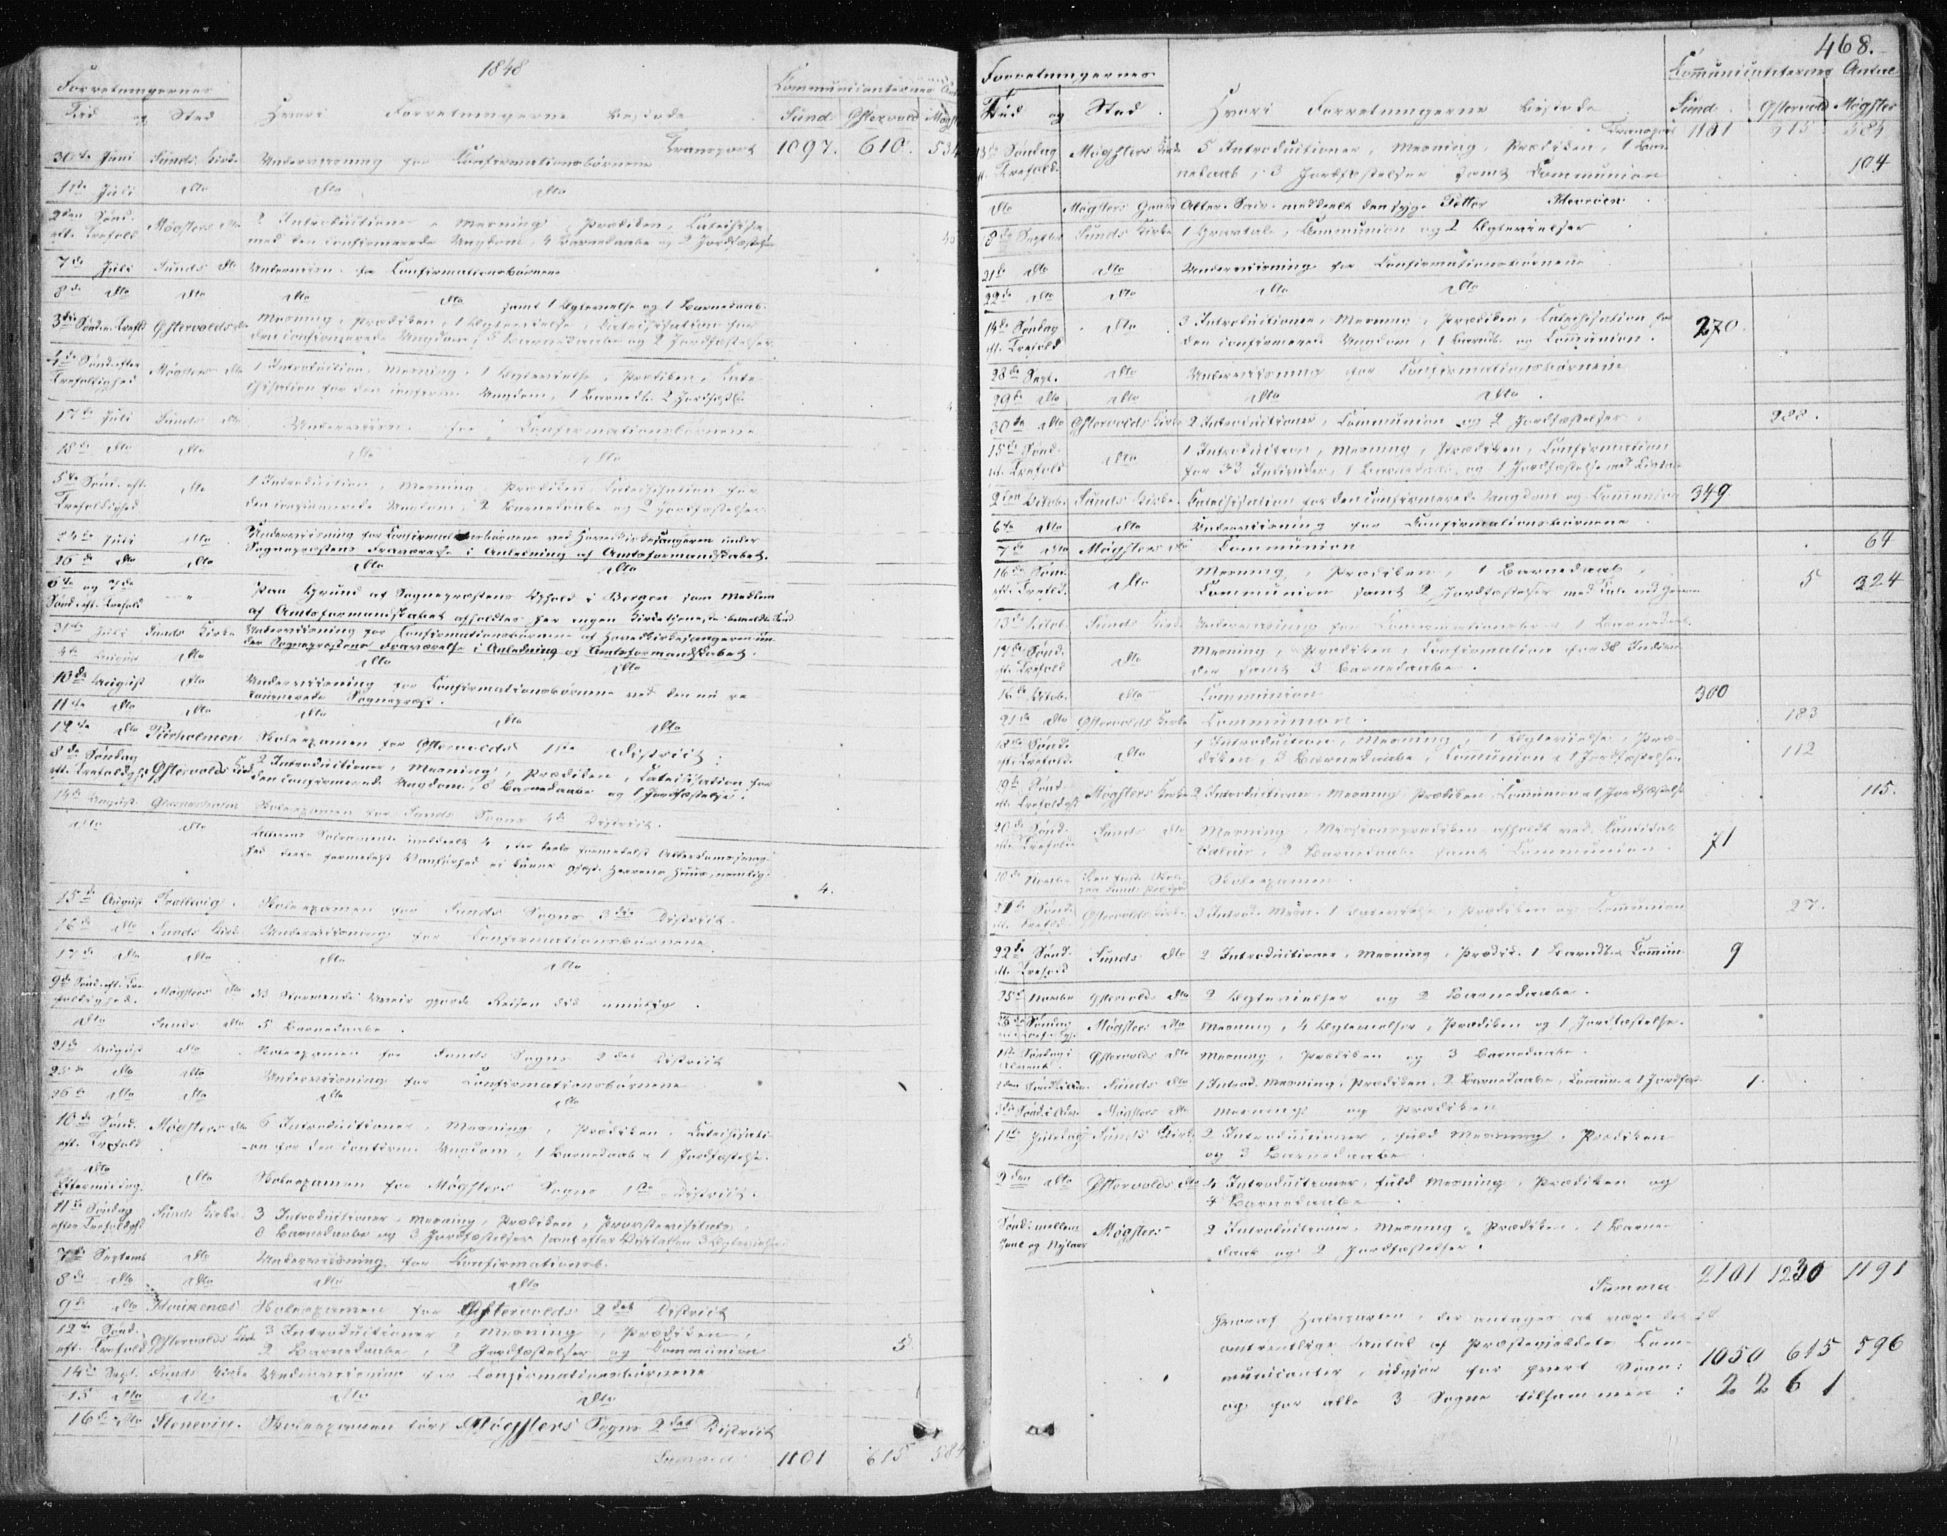 1848
Forretningernes
Communicanternes
Tid og Sted
Hvori Forretningerne bestode
Sund. Østervold Møgster
Transport 1097. 610. 534
30te Juni Sunds Kirke Underviisning for Confirmationsbørnene
1ste Juli dto dto dto
2den Sønd. eft. Trefold Møgsters dto 2 Introductioner, Messning, Prædiken, Catechisa-
med den confirmerede Ungdom, 4 Barnedaabe og 2 Jordfæstelser
7de Juli Sunds dto Underviisn. for Confirmationsbørnene
8de dto dto dto dto samt 1 Ægtevielse og 1 Barnedaab.
3die Sønd. eft. Trefold Østervolds dto Messning, Prædiken, 1 Ægtevielse, Catechisation for
den confirmerede Ungdom, 5 Barnedaabe og 2 Jordfæstelser.
4de Sønd. efter Trefoldighed Møgsters dto 1 Introduction, Messning, 1 Ægtevielse, Prædiken, Cate-
chisation for den confirm. Ungdom, 1 Barned. 2 Jordfæstls.
17de Juli Sunds dto Underviisn. for Confirmationsbørnene
18de dto dto dto dto
5te Sønd. eft. Trefoldighed dto 1 Introduction, Messning, Prædiken, Catechisation for
den confirmerede Ungdom, 2 Barnedaabe og 2 Jordfæstelser.
24de Juli dto Underviisning for Confirmationsbørnene ved Hovedkirkesangeren under
Sognepræstens Fraværelse i Anledning af Amtsformandskabet.
dto dto dto dto
6te og 7de Sønd. eft. Trefold " Paa Grund af Sognepræstens Ophold i Bergen som Medlem
af Amtsformandskabet afholdtes her ingen Kirketjeneste
31te Juli Sunds Kirke Underviisning for Confirmationsbørnene af Hovedkirkesangeren un-
der Sognepræstens Fraværelse i Anledning af Amtsformandskabet.
August dto dto dto
10de August dto Underviisning for Confirmationsbørnene ved den nu re-
tournerede Sognepræst.
11te dto dto dto dto dto
12te dto Skoleexamen for Østervolds 1ste District.
8de Søndag eft. Trefoldigh. Østervolds Kirke 2 Introductioner, Messning, Prædiken, Catechisation for
den confirmerede Ungdom, 8 Barnedaabe og 1 Jordfæstelse.
14de August Skoleexamen for Sunds Sogns 4de District.
dto dto Alterens Sacramente meddeelt 4, der deels formedelst Alderdomssvag-
hed deels formedelst Vanførhed ei kunne Herrens Huus, nemlig: 4.
15de August Skoleexamen for Sunds Sogns 3die District
16de dto Sunds Kirke Underviisning for Confirmationsbørnene.
17de dto dto dto dto
9de Sønd. eft. Tre-foldighed. Møgsters dto Stormende Veir gjorde Reisen did umulig.
dto Sunds dto 5 Barnedaabe.
21de August dto Skoleexamen for Sunds Sogns 2det District
25de dto dto Underviisning for Confirmationsbørnene
26de dto dto dto dto
10de Sønd. eft. Trefold Møgsters dto 6 Introductioner, Messning, Prædiken, Catechisati-
on for den confirm. Ungdom, 1 Barnedaab & 1 Jordfæstelse.
dto Eftermiddag. dto Skoleexamen for Møgsters Sogns 1ste District.
11te Søndag efter Trefoldigh. Sunds Kirke 3 Introductioner, Messning, Prædiken, Provstevisitats,
8 Barnedaabe og 3 Jordfæstelser samt efter Visitatsen 3 Ægtevielser
7de Septemb. dto Underviisning for Confirmationsb.
8de dto dto dto dto
9de dto Skoleexamen for Østervolds 2det District
12te Sønd. eft. Trefold Østervolds Kirke 3 Introductioner, Messning, Prædiken,
2 Barnedaabe, 2 Jordfæstelser og Communion 5
14de Sept. Sunds Kirke Underviisning for Confirmationsbørnene
15 dto dto dto dto
16de dto Stenevig. Skoleexamen for Møgsters Sogns 2det District
Summa 1101 615 584
468.
Forretningernes
Communicanternes Antal
Tid og Sted. Hvori Forretningerne bestode Sund. Østervold Møgster
Transport 1101 615 584
13de Søndag eft. Trefold. Møgsters Kirke 5 Introductioner, Messning, Prædiken, 1 Bar-
nedaab, 3 Jordfæstelser samt Communion 104
dto Møgsters Alter. Sacr. meddeelt den syge Petter
18de Septbr Sunds Kirke 1 Gravtale, Communion og 2 Ægtevielser
21de dto dto Underviisning for Confirmationsbørnene
22de dto dto dto dto
14de Søndag eft. Trefold dto 3 Introductioner, Messning, Prædiken, Catechisation for
den confirmerede Ungdom, 1 Barnd. og Communion. 270.
28de Sept. dto Underviisning for Confirmationsbørnene
29de dto dto dto dto.
30te dto Østervolds Kirke 2 Introductioner, Communion og 2 Jordfæstelser. 288.
15de Sønd. eft. Trefold. dto 1 Introduction, Messning, Prædiken, Confirmation
for 33 Individer, 1 Barnedaab, og 1 Jordfæstelse med Ligtale
2den Octobr. Sunds Kirke Catechisation for den confirmerede Ungdom og Communion 349
6te dto dto Underviisning for Confirmationsbørnene.
7de dto Møgsters dto Communion 64
16de Sønd. eft. Trefold. dto Messning, Prædiken, 1 Barnedaab,
Communion samt 2 Jordfæstelser med Tale ved Graven 5 324
13de Octob. Sunds Kirke Underviisning for Confirmationsbørnene & 1 Barnedaab.
17de Sønd. eft. Trefold dto Messning, Prædiken, Confirmation for 38 Indivi-
der samt 3 Barnedaabe.
16de Octob. dto Communion 300
21de dto Østervolds Kirke Communion. 183
18de Sønd. eft. Trefold. dto 1 Introduction, Messning, 1 Ægtevielse, Præ-
diken, 3 Barnedaabe, Communion & 1 Jordfæstelse. 112
19de Sønd. eft. Trefoldigh. Møgsters Kirke 2 Introductioner, Messning, Prædiken, Communion & 1 Jordfæstelse 115.
20de Sønd. eft. Trefold. Sunds dto Messning, Missionsprædiken afholdt ved Candidat
2 Barnedaabe samt Communion. 71
Novbr. Skoleexamen.
21de Sønd. eft. Trefold Østervolds Kirke 3 Introd. Messn. 1 Ægtevielse, Prædiken og Communion 27.
22de Sønd. eft. Trefold Sunds dto 2 Introductioner, Messning, Prædik. 1 Barndb. & Commun. 9
25de Novbr Østervolds dto 2 Ægtevielser og 2 Barnedaabe.
23de Søndag Møgsters dto Messning, 4 Ægtevielser, Prædiken og 1 Jordfæstelse.
1ste Søndag i Advent. Østervolds dto Messning, Prædiken og 3 Barnedaabe.
2den Sunds dto 1 Introd. Messning, Prædiken, 2 Barnedaabe, Commun. & 1 Jordfæst. 1.
3die Sønd. i Adv. Møgsters dto Messning og Prædiken
1ste Juledag Sunds Kirke 2 Introductioner, fuld Messning, Prædiken
og 3 Barnedaabe
2den dto Østervolds dto 4 Introductioner, fuld Messning, Prædiken og
4 Barnedaabe.
Sønd. mellem Juul og Nytaar Møgsters 2 Introductioner, Messning, Prædiken, 1 Barne-
daab og 2 Jordfæstelser.
Summa 2101 1230 1191
Hvoraf Halvparten, der antages at være det
omtrentlige Antal af Præstegjeldets Com-
municanter, udgjør for hvert Sogn: 1050 615 596
og for alle 3 Sogne tilsammen: 2261